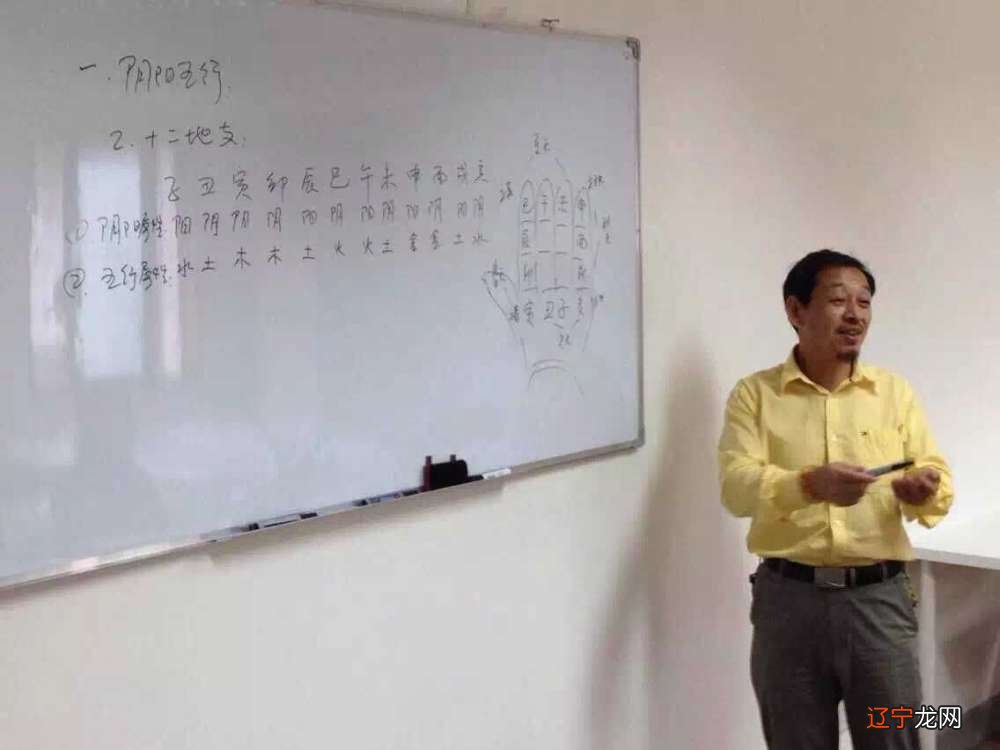 一.阴阳五行.
2.十二地支:
子丑寅卯辰巳午未申酉戌亥
① 阴阳属性 阳 阴 阳 阴 阳 阴 阳 阴 阳 阴 阳 阴
②.五行属性:水 土 木 木 土 火 火 土 金 金 土 水
巳 午 未 申
辰 酉
卯 戌
寅 丑 子 亥
辽宁龙网